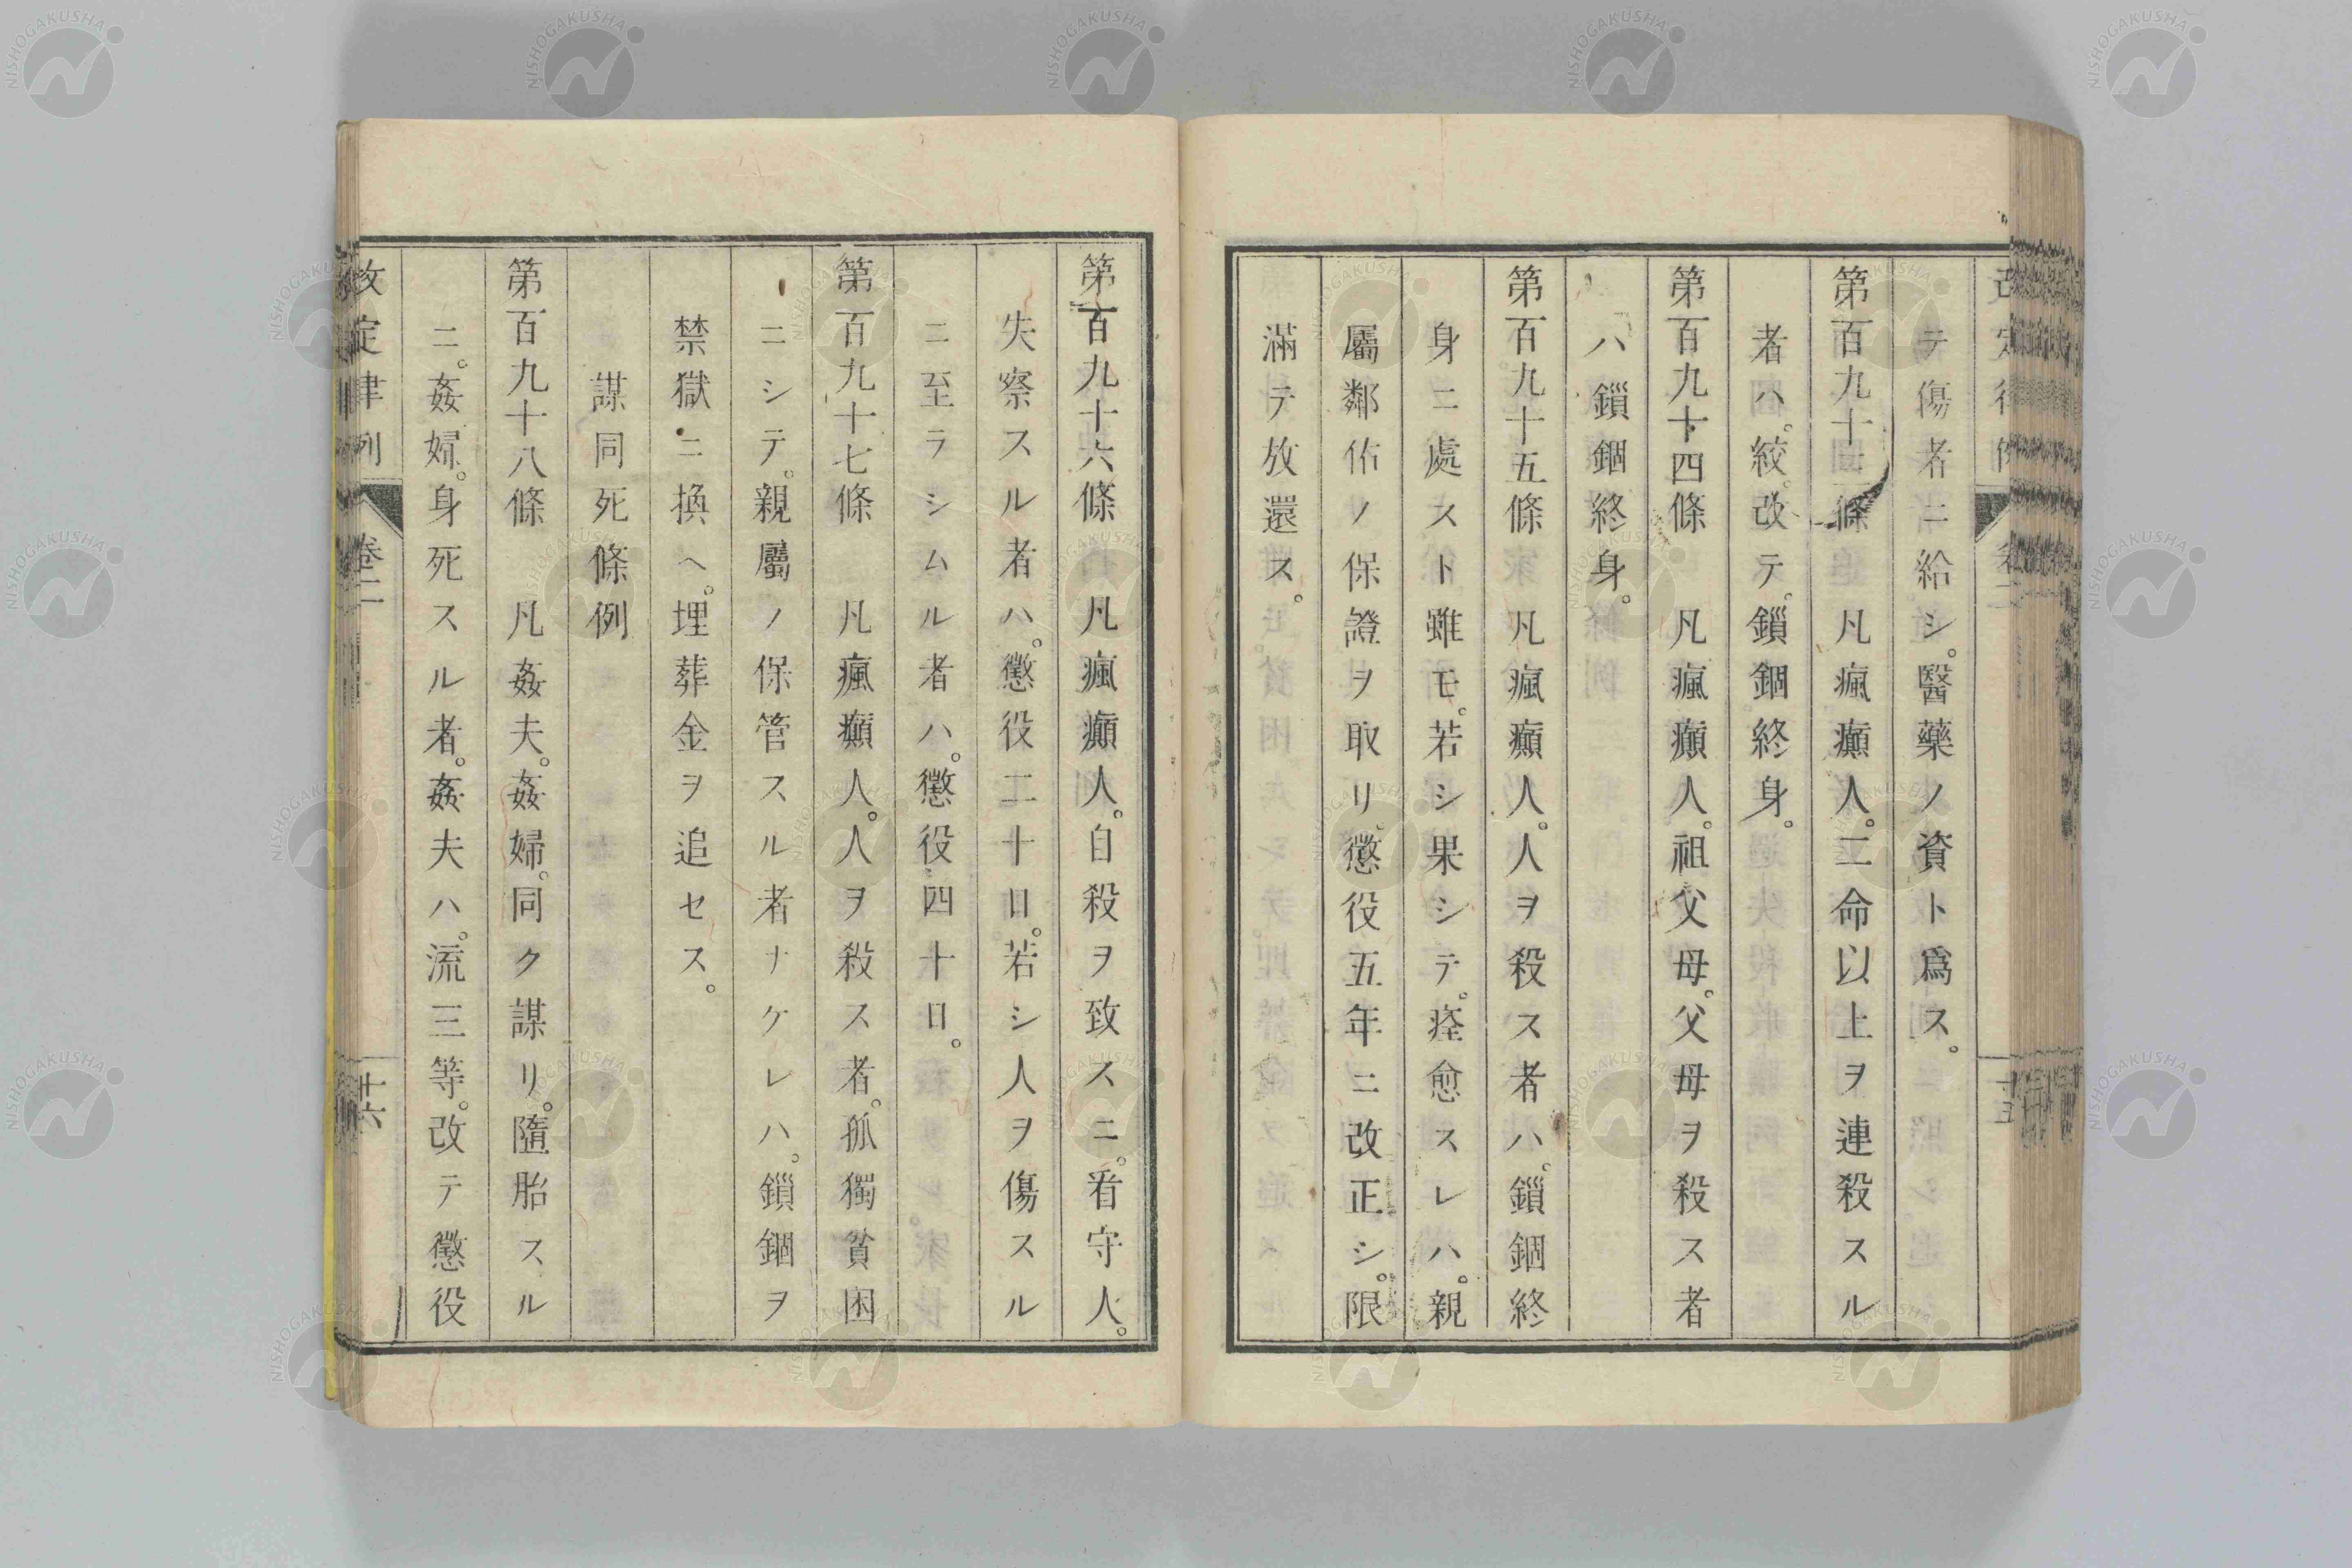 テ傷者ニ給シ。醫藥ノ資ト爲ス。
第百九十三條　凡瘋癲人。二命以上ヲ連殺スル
者ハ。絞。改テ。鎖錮終身。
第百九十四條　凡瘋癲人。祖父母。父母ヲ殺ス者
ハ鎖錮終身。
第百九十五條　凡瘋癲人。人ヲ殺ス者ハ。鎖錮終
身ニ處スト雖モ。若シ果シテ。痊愈スレハ。親
屬鄰佑ノ保證ヲ取リ。懲役五年ニ改正シ。限
滿テ放還ス。
第百九十六條　凡瘋癲人。自殺ヲ致スニ。看守人。
失察スル者ハ。懲役二十日。若シ人ヲ傷スル
ニ至ラシムル者ハ。懲役四十日。
第百九十七條　凡瘋癲人。人ヲ殺ス者。孤獨貧困
ニシテ。親屬ノ保管スル者ナケレハ。鎖錮ヲ
禁獄ニ換ヘ。埋葬金ヲ追セス。
謀同死條例
第百九十八條　凡姦夫。姦婦。同ク謀リ。墮胎スル
ニ。姦婦。身死スル者。姦夫ハ。流三等。改テ懲役
改定律例　卷二　十六
NISHOGAKUSHA